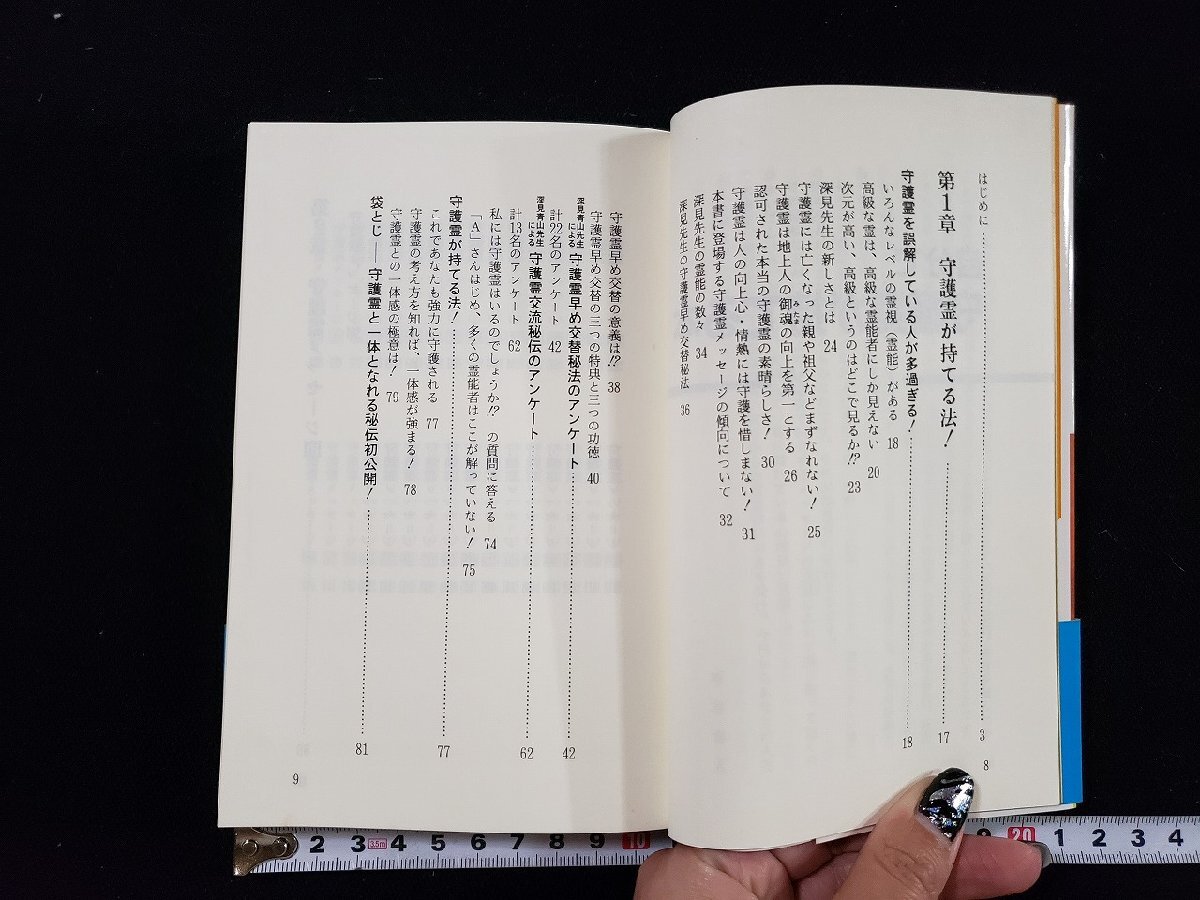 はじめに……………3
第1章　守護霊が持てる法！……………17
守護霊を誤解している人が多過ぎる！……………18
いろんなレベルの霊視（霊能）がある　18
高級な霊は、高級な霊能者にしか見えない　20
次元が高い、高級というのはどこで見るか!?　23
深見先生の新しさとは　24
守護霊には亡くなった親や祖父などまずなれない！　25
守護霊は地上人の御魂の向上を第一とする　26
みたま
認可された本当の守護霊の素晴らしさ！　30
守護霊は人の向上心・情熱には守護を惜しまない！　31
本書に登場する守護霊メッセージの傾向について　32
深見先生の霊能の数々　34
深見先生の守護霊早め交替秘法　36
8
守護霊早め交替の意義は!?　38
守護霊早め交替の三つの特典と三つの功徳　40
深見青山先生による　守護霊早め交替秘法のアンケート……………42
計22名のアンケート　42
深見青山先生による　守護霊交流秘伝のアンケート……………62
計13名のアンケート　62
私には守護霊はいるのでしょうか!?　の質問に答える　74
「A」さんはじめ、多くの霊能者はここが解っていない！　75
守護霊が持てる法！……………77
これであなたも強力に守護される　77
守護霊の考え方を知れば、一体感が強まる！　78
守護霊との一体感の極意は！　79
袋とじ――守護霊と一体となれる秘伝初公開！……………81
9
2 3 3.5m 4 5 6 7 8 9 10
9 20 1 2 3 4